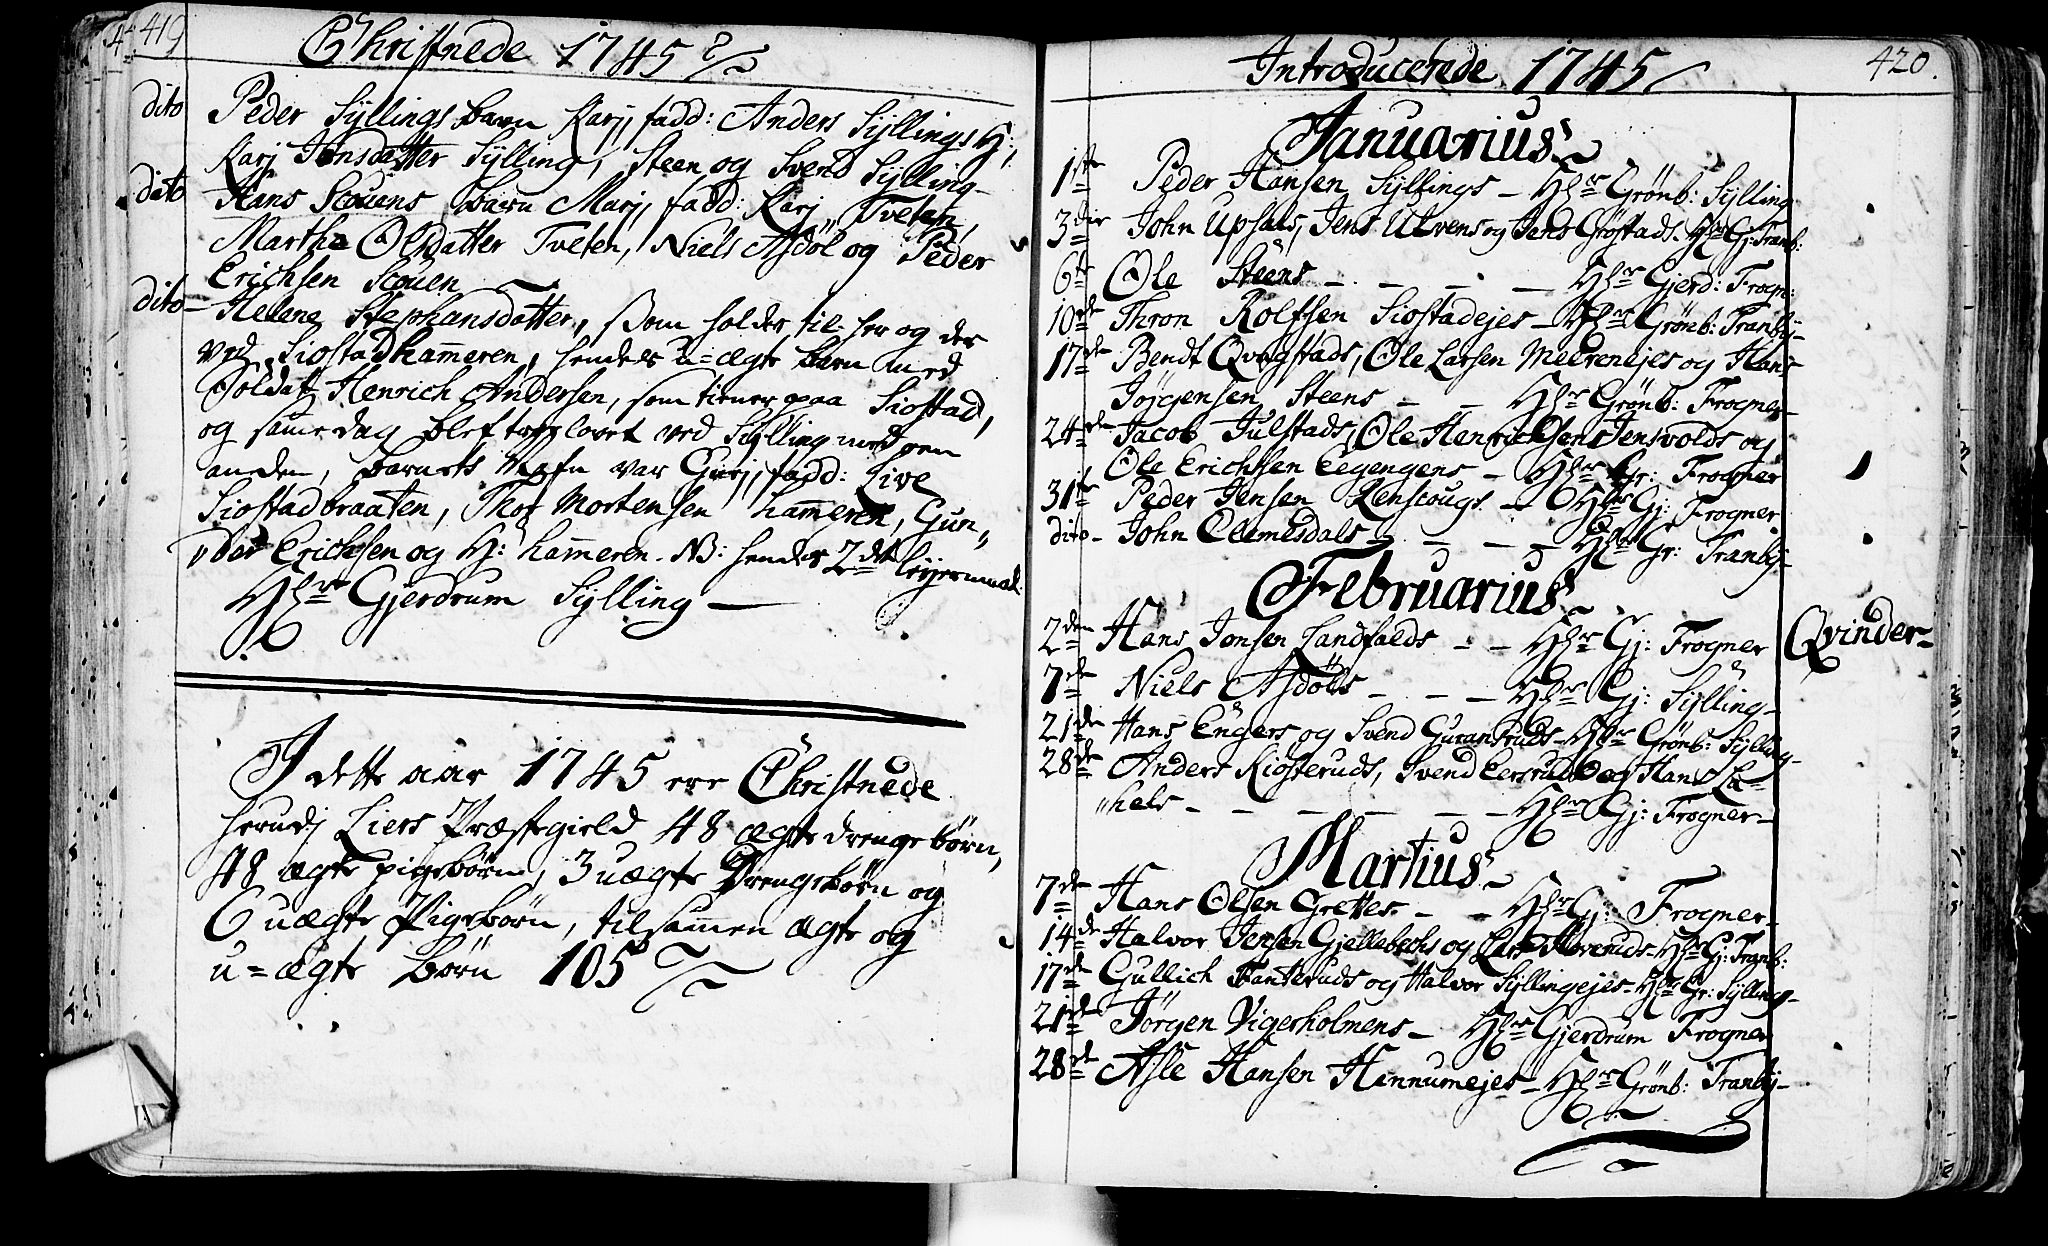 419
Christnede 1745
dito Peder Syllings barn Karj, fadd: Anders Syllings H:
Karj Jonsdatter Sylling, Steen og Svend Sylling
dito Hans Scouens barn Marj, fadd: Karj Tveten,
Martha Olsdatter Tveten, Niels Asdøl og Peder
Erichsen Scouen
dito Helena Stephansdatter, som holder til her og der
ved Siostadhameren, hendes u=ægte barn med
Soldat Henrich Andersen, som tiener paa Siostad,
og same dag blef troelovet ved Sylling med en
anden, barnets Nafn var Gurj, fadd: Live
Siostadbraaten, Thor Mortensen hameren, Gun„
„dor Erichsen og H: hameren. NB: hendes 2det leyermaal.
Hr Gjerdrum Sylling
I dette aar 1745 ere Christnede
herudj Liers Præstegield 48 ægte drenge børn,
48 ægte pigebørn, 3 uægte Drengebørn og
6 uægte Pigebørn, tilsamen ægte og
u=ægte børn 105
420.
Introducerede 1745
Januarius
1ste Peder Hansen Syllings - Hr Grønb: Sylling
3die John Upsals, Jens Ulvens og Jens Grøstads. Hr Gj: Tranb:
6te Ole Steens - - - - Hr Gjerd: Frogn:
10de Thron Rolfsen Siostadejes - Hr Grønb: Tranby
17de Bendt Qvegstads, Ole Larsen Meerenejes og Hans
Jørgensen Steens - - Hr Grønb: Frogner
24de Jacob Julstads, Ole Henrichsens Jensvolds og
Ole Erichsen Eegengens - Hr Gr: Frogner
31te Peder Jensen Lenscougs. - Hr Gj: Frogner
dito - John Clemesdals - - - - Hr Gr: Tranby
Februarius
2den Hans Jonsen Landfalds - - Hr Gj: Frogner Qvinder
7de Niels Asdøls - - - Hr Gj: Sylling
21de Hans Engers og Svend Guransruds - Hr Grønb: Sylling
28de Anders Kiosteruds, Svend Eersruds og Hans La-
„hels - - - - - - Hr Gj: Frogner
Martius
7de Hans Olsen Grettes. - - Hr Gj: Frogner
14de Halvor Jensen Gjellebechs og Lars ruds - Hr Gj: Tranb:
17de Gullich Tanteruds og Halvor Syllingejes - Hr Gr: Sylling
21de Jørgen Vigerholmens - Hr Gjerdrum Frogner
28de Asle Hansen Hennumejes - Hr Grønb: Tranby